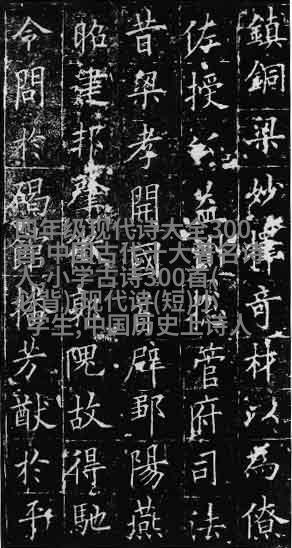 鎮銅梁妙擇奇材以為僚
佐授公益州管府司法
昔梁孝開國首辟鄒陽燕
昭建邦肇隗故得馳
令問於碣館播芳猷於平
四年级现代诗大全300
首,中国古代十大著名诗
人,小学古诗300首(
必背),现代诗(短)小
学生,中国历史上诗人